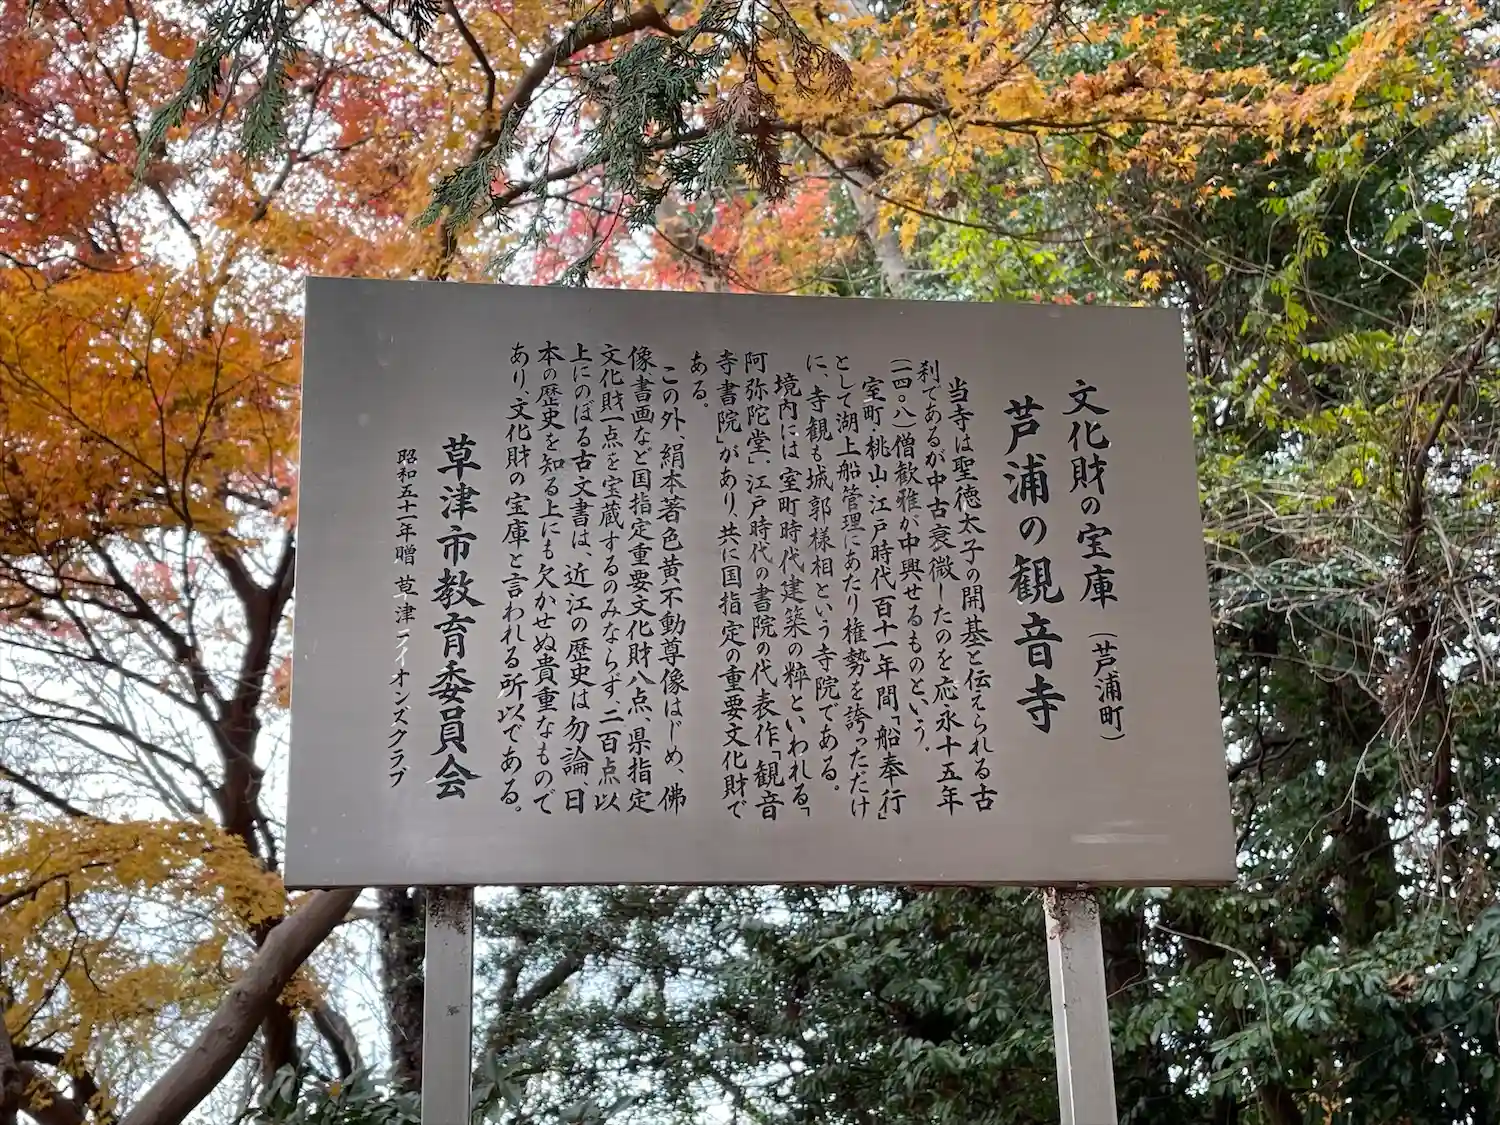 文化財の宝庫(芦浦町)
芦浦の観音寺
当寺は聖徳太子の開基と伝えられる古
刹であるが中古衰微したのを応永十五年
(一四〇八)僧歓雅が中興せるものという。
室町・桃山・江戸時代百十一年間「船奉行」
として湖上船管理にあたり権勢を誇っただけ
に、寺観も城郭様相という寺院である。
境内には室町時代建築の粋といわれる「
阿弥陀堂」、江戸時代の書院の代表作「観音
寺書院」があり、共に国指定の重要文化財で
ある。
この外、絹本著色黄不動尊像はじめ、佛
像書画など国指定重要文化財八点、県指定
文化財一点を宝蔵するのみならず、二百点以
上にのぼる古文書は、近江の歴史は勿論日
本の歴史を知る上にも欠かせぬ貴重なもので
あり、文化財の宝庫と言われる所以である。
草津市教育委員会
昭和五十一年贈 草津ライオンズクラブ